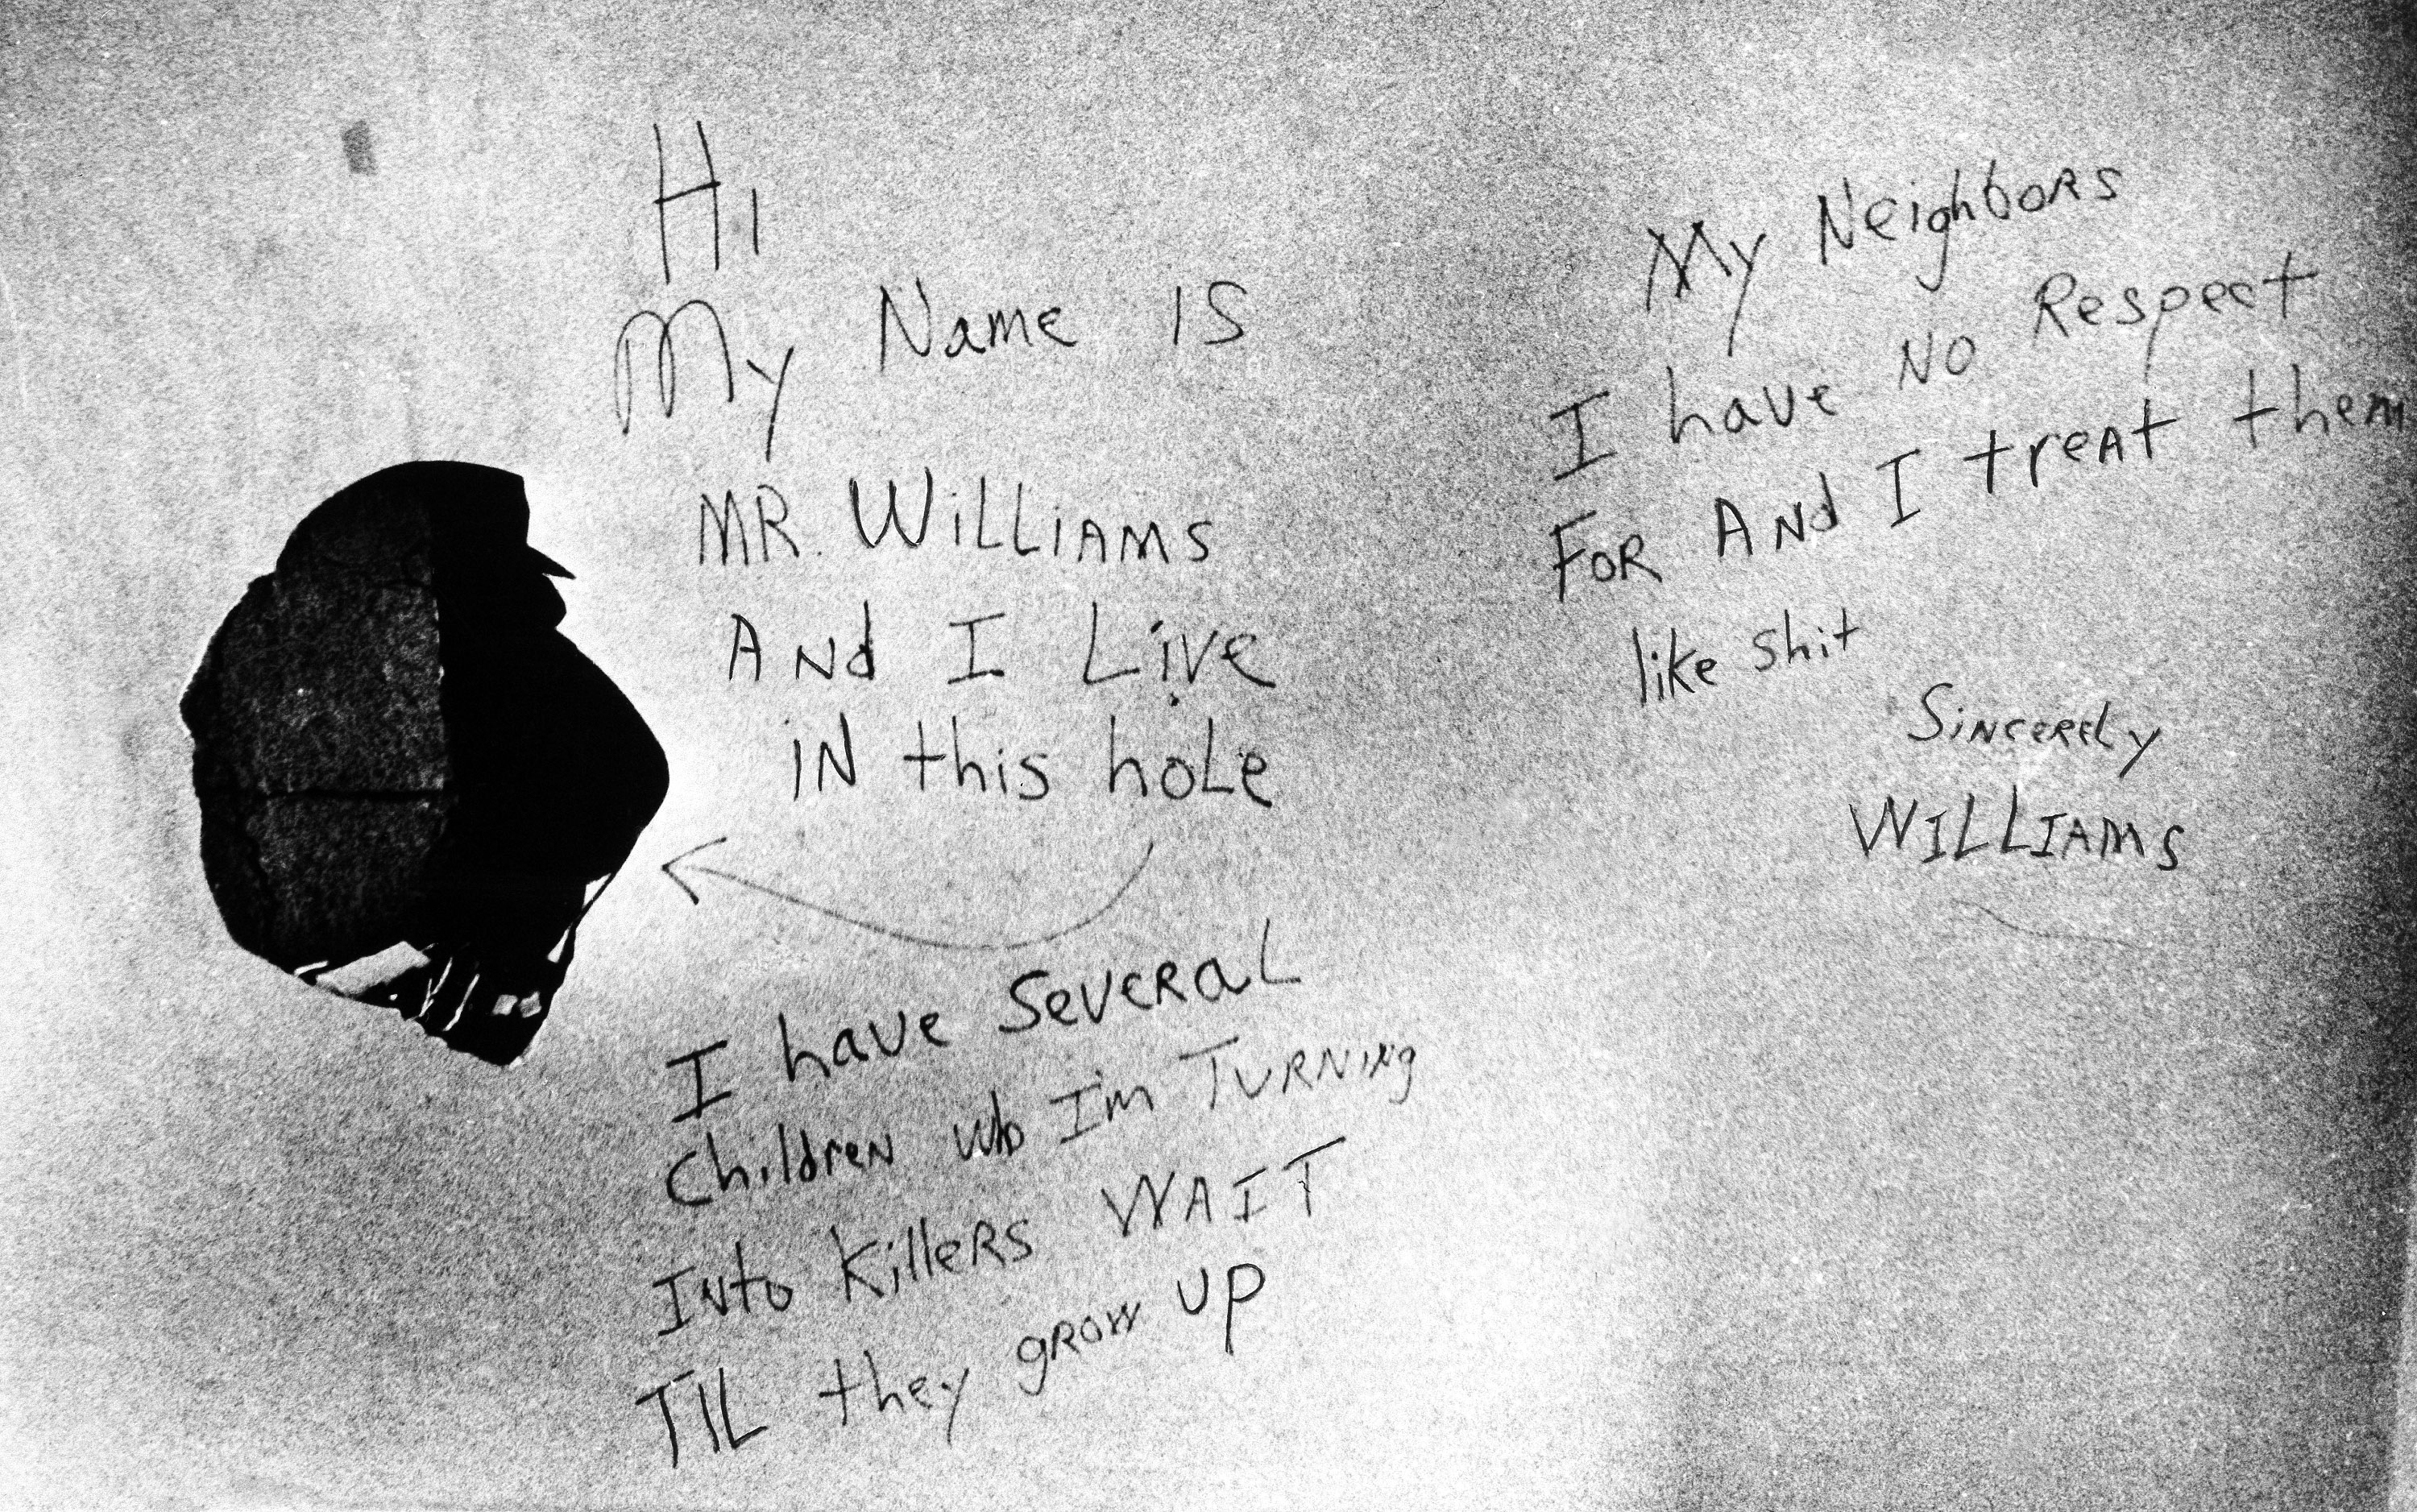 Hi
My Name IS
MR. WiLLiAMS
ANd I Live
iN this hoLe
I have SeveRaL
Children who I'm TURNiNg
INto KilleRS WAIT
TIL they gROW UP
My NeighboRS
I have NO Respect
FOR ANd I treAt them
like shit
SiNCEREly
WILLIAMS